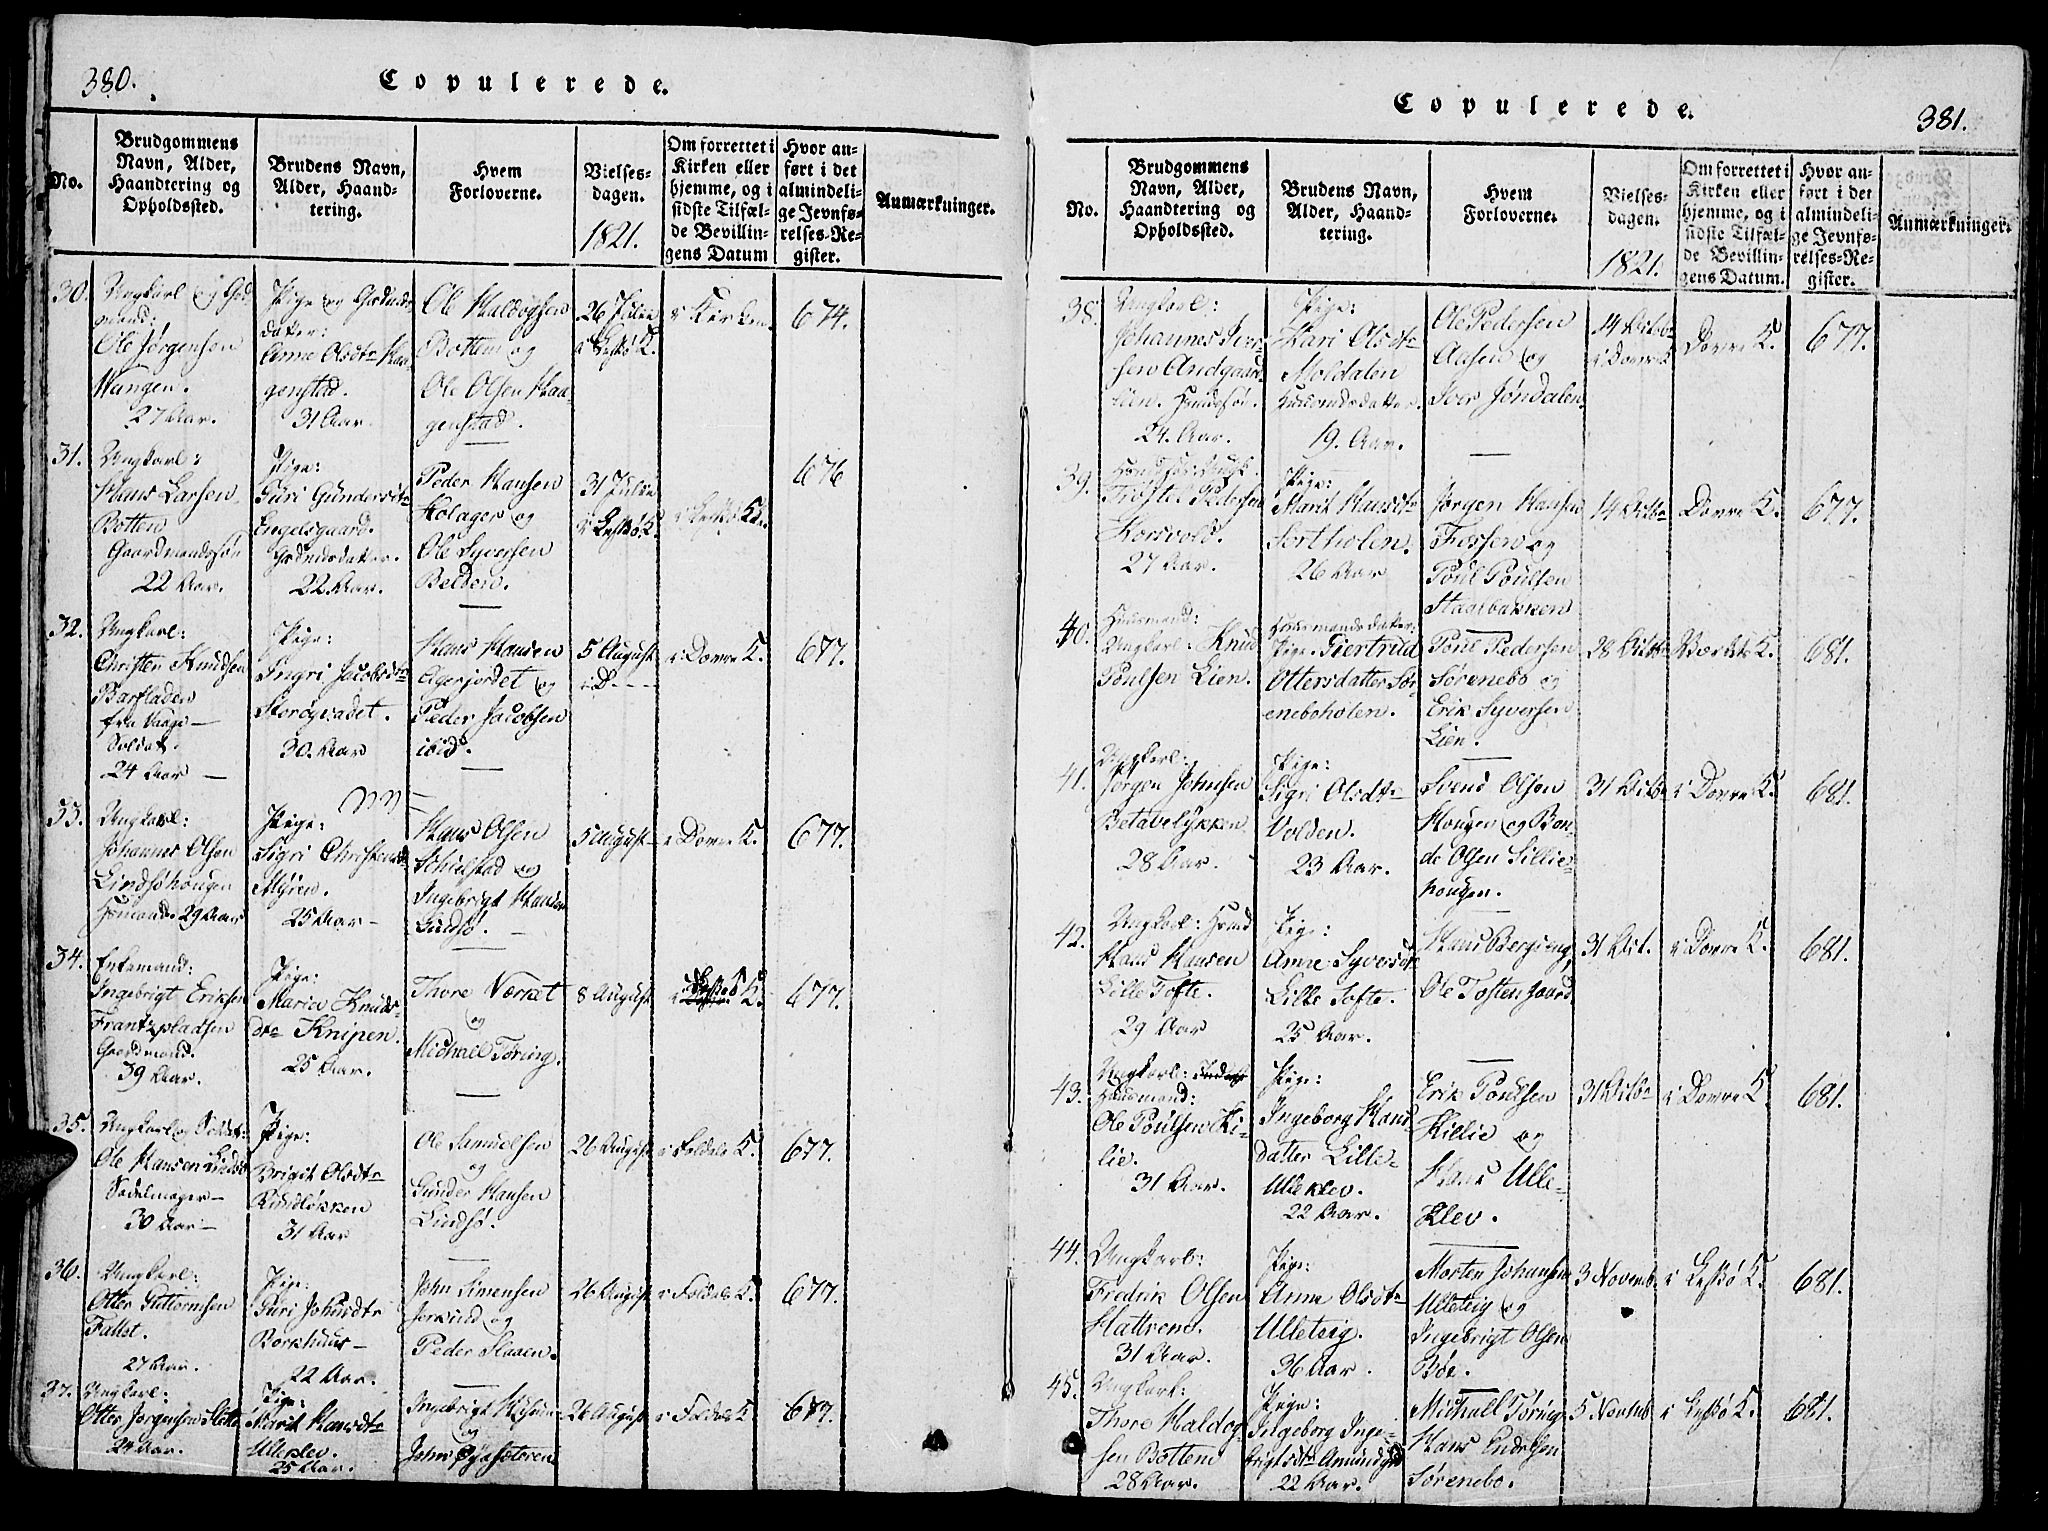 380.
Copulerede.
No.
Brudgommens
Navn, Alder,
Haandtering og
Opholdssted.
Brudens Navn,
Alder, Haand-
tering.
Hvem
Forloverne.
Vielses-
dagen.
1821.
Om forrettet i
Kirken eller
hjemme, og i
sidste Tilfæl-
de Bevillin-
gens Datum
Hvor an-
ført i det
almindeli-
ge Jevnfø-
relses-Re-
gister.
Anmærkninger.
30.
Ungkarl og
mand:
Ole Jørgensen
Wangen.
27 Aar.
Pige og
datter:
Anne Olsdtr Haa-
genstad.
31 Aar.
Ole Haldogsen
Bottem og
Ole Olsen Haa-
genstad.
26 Julii
i Kirken
674.
31.
Ungkarl:
Hans Larsen
Botten
Gaardmandssøn
22 Aar.
Pige:
Guri Gundersdtr
Engelsgaard.
22 Aar.
Peder Hansen
Kolager og
Ole Syversen
Belden.
31 Julii
i Leskø K.
i Leskø K.
676
32.
Ungkarl:
Christen Knudsen
Barfladen
fra Vaage
Soldat.
24 Aar
Pige:
Ingri Jacobsdtr
30. Aar
Hans Hansen
Agerjordet og
Peder Jacobsen
ibid.
5 August
i Dovre K.
677.
33.
Ungkarl:
Johannes Olsen
Lindsøhougen
Husmand. 29 Aar
Pige:
Sigri Christensd
Myren.
25 Aar
Hans Olsen
Schielstad og
Ingebrigt Hansen
Lindsø.
5 August
i Dovre K.
677.
34.
Enkemand:
Ingebrigt Eriksen
Frantzpladsen
Gaardmand.
39 Aar.
Pige:
Maria Knuds-
dtr Knipen.
25 Aar.
Thore Værket
og
Michall Toring.
8 August
677.
35.
Ungkarl og Soldat:
Ole Hansen Lindsø
Sadelmager
30 Aar
Pige:
Brigit Olsdtr
Rundløkken
31 Aar
Ole Samuelsen
og
Gunder Hansen
Lindsø.
26 August
i Foldals K.
677.
36.
Ungkarl:
Otter Guttormsen
Fallet.
27 Aar.
Pige:
Guri Johnsdtr
Borkhuus
22 Aar.
John Simensen
Jerkind og
Peder Slaaen.
26 August
i Foldals K.
677.
37.
Ungkarl:
Otter Jørgensen Slette
24 Aar.
Pige:
Marit Hansdtr
Ulleklev.
25 Aar.
Ingebrigt
og
26 August
i Foldals K
677.
381.
Copulerede.
No.
Brudgommens
Navn, Alder,
Haandtering og
Opholdssted.
Brudens Navn,
Alder, Haand-
tering.
Hvem
Forloverne.
Vielses-
dagen.
1821.
Om forrettet i
Kirken eller
hjemme, og i
sidste Tilfæl-
de Bevillin-
gens Datum.
Hvor an-
ført i det
almindeli-
ge Jevnfø-
relses-Re-
gister.
Anmærkninger.
38.
Ungkarl:
Johannes Iver-
sen Andgaard-
lien.
24. Aar.
Pige:
Kari Olsdtr
Moldalen
Huusmdsdatter.
19. Aar.
Ole Pedersen
Aasen og
Iver Jøndalen.
14 Octbr
i Dovre K
Dovre K.
677.
39.
Trostel Pedersen
Korsvold.
27 Aar.
Pige:
Marit Hansdtr
Sortholen.
26 Aar
Jørgen Hansen
Fossen og
Poul Poulsen
Staalbakken
14 Octbr
Dovre K.
677.
40.
Huusmand:
Ungkarl: Knud
Poulsen Lien.
Huusmandsdatter:
Pige. Giertrud
Ottersdatter Sør-
eneboholen.
Poul Pedersen
Sørenebo og
Erik Syversen
Lien.
28 Octbr
Værkets K.
681.
41.
Ungkarl:
Jørgen Johnsen
Betavelykken
28 Aar.
Pige:
Sigri Olsdtr
Volden.
23 Aar.
Svend Olsen
Hougen og Bon-
de Olsen Lillie-
hougen.
31 Octbr
i Dovre K.
681.
42.
Ungkarl:
Hans Hansen
Lille Tofte.
29 Aar
Pige:
Anne Syversdtr
Lille Tofte.
25 Aar.
Hans Bergseng,
Ole Tostengaard
31 Oct.
i Dovre K.
681.
43.
Ungkarl:
Huusmand:
Ole Poulsen Ki-
lie.
31 Aar.
Pige:
Ingeborg Hans
datter Lille-
Ulleklev.
22 Aar.
Erik Poulsen
Killie og
Hans Ulle-
klev.
31 Octbr
i Dovre K.
681.
44.
Ungkarl:
Fredrik Olsen
Hattrem.
31 Aar.
Pige:
Anne Olsdtr
Ulleteig.
36 Aar.
Morten Johansen
Ulleteig og
Ingebrigt Olsen
Böe.
3 Novemb.
i Leskø K.
681.
45.
Ungkarl:
Thore Haldog-
sen Bottem
28 Aar.
Pige:
Ingeborg Inge-
brigtsdtr Amundgrd
22 Aar.
Michall Toring
Hans Endresen
Sørenebo.
5 Novemb
i Leskø K.
681.